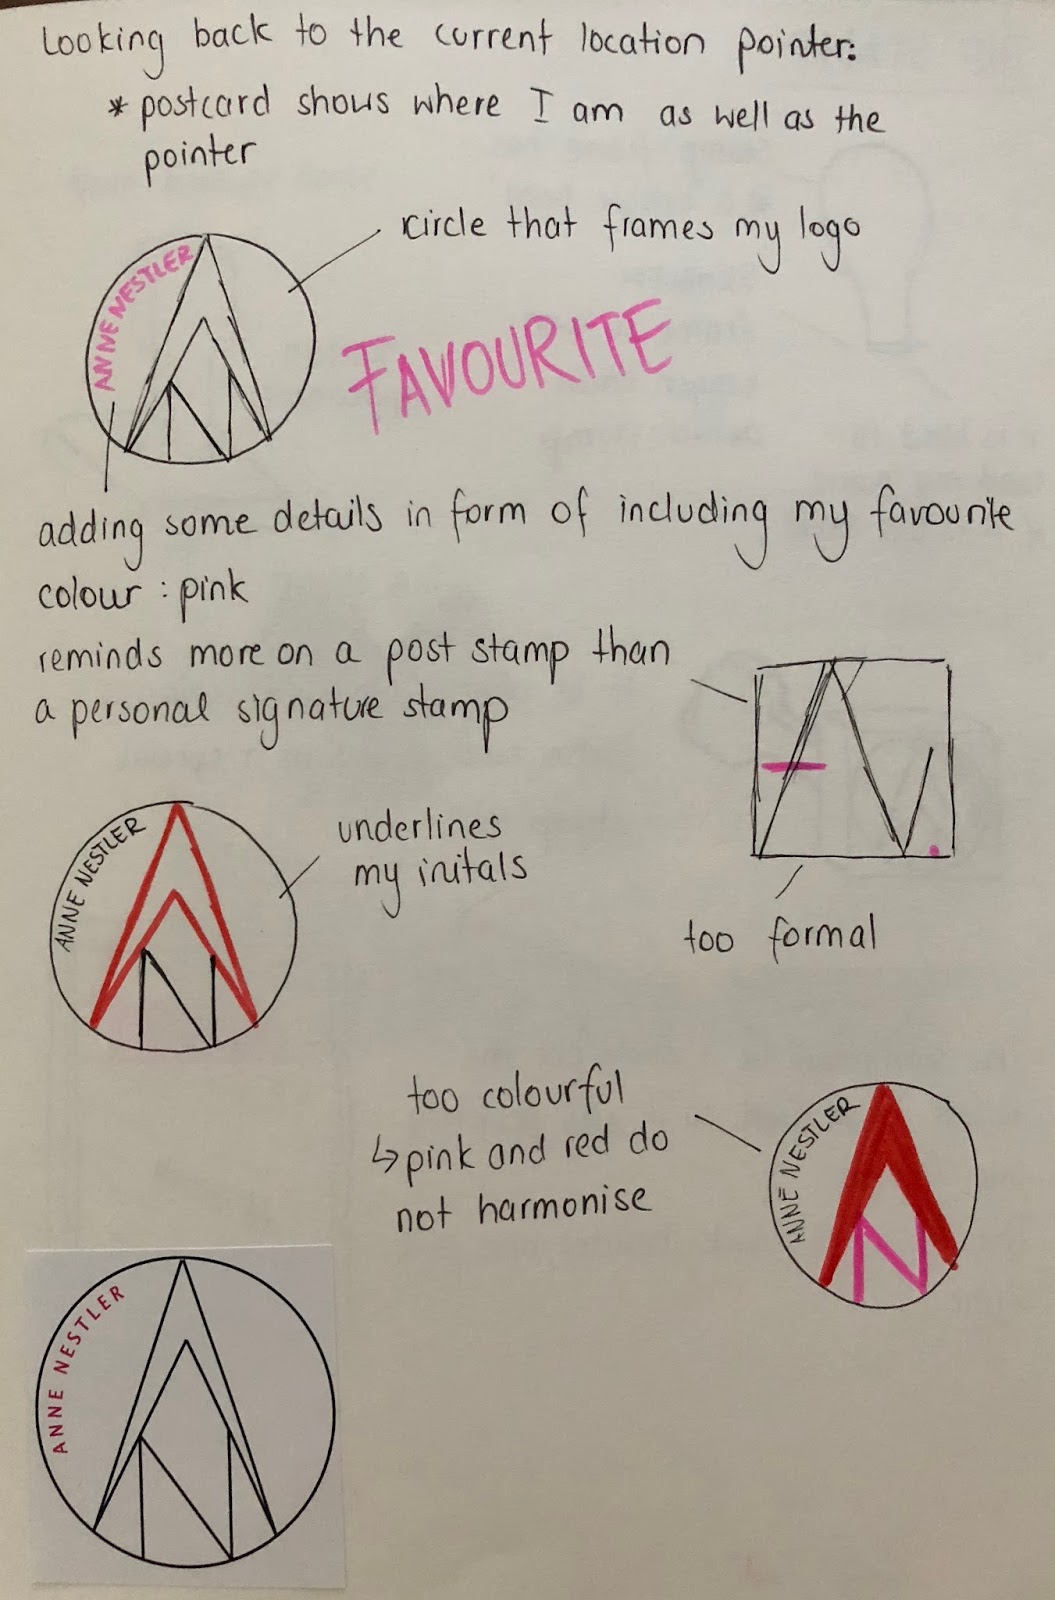 Looking back to the current location pointer:
* postcard shows where I am as well as the
pointer
circle that frames my logo
ANNE NESTLER
FAVOURITE
adding some details in form of including my favourite
colour : pink
reminds more on a post stamp than
a personal signature stamp
ANNE NESTLER
underlines
my initals
too formal
too colourful
↳ pink and red do
not harmonise
ANNE NESTLER
ANNE NESTLER